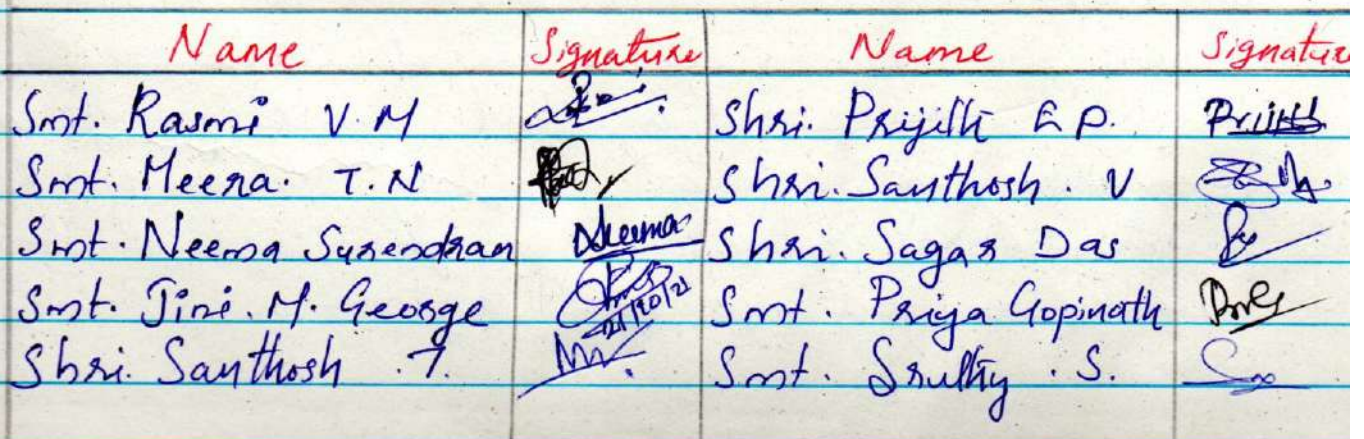 Name Signature Name Signature
Smt. Rasmi V.M Shri. Prijith E.P. Prijith
Smt. Meera. T.N Shri. Santhosh. V
Smt. Neema Surendran Neema Shri. Sagar Das
Smt. Jini. M. George 21/10/21 Smt. Priya Gopinath
Shri. Santhosh .T. Smt. Sruthy . S.